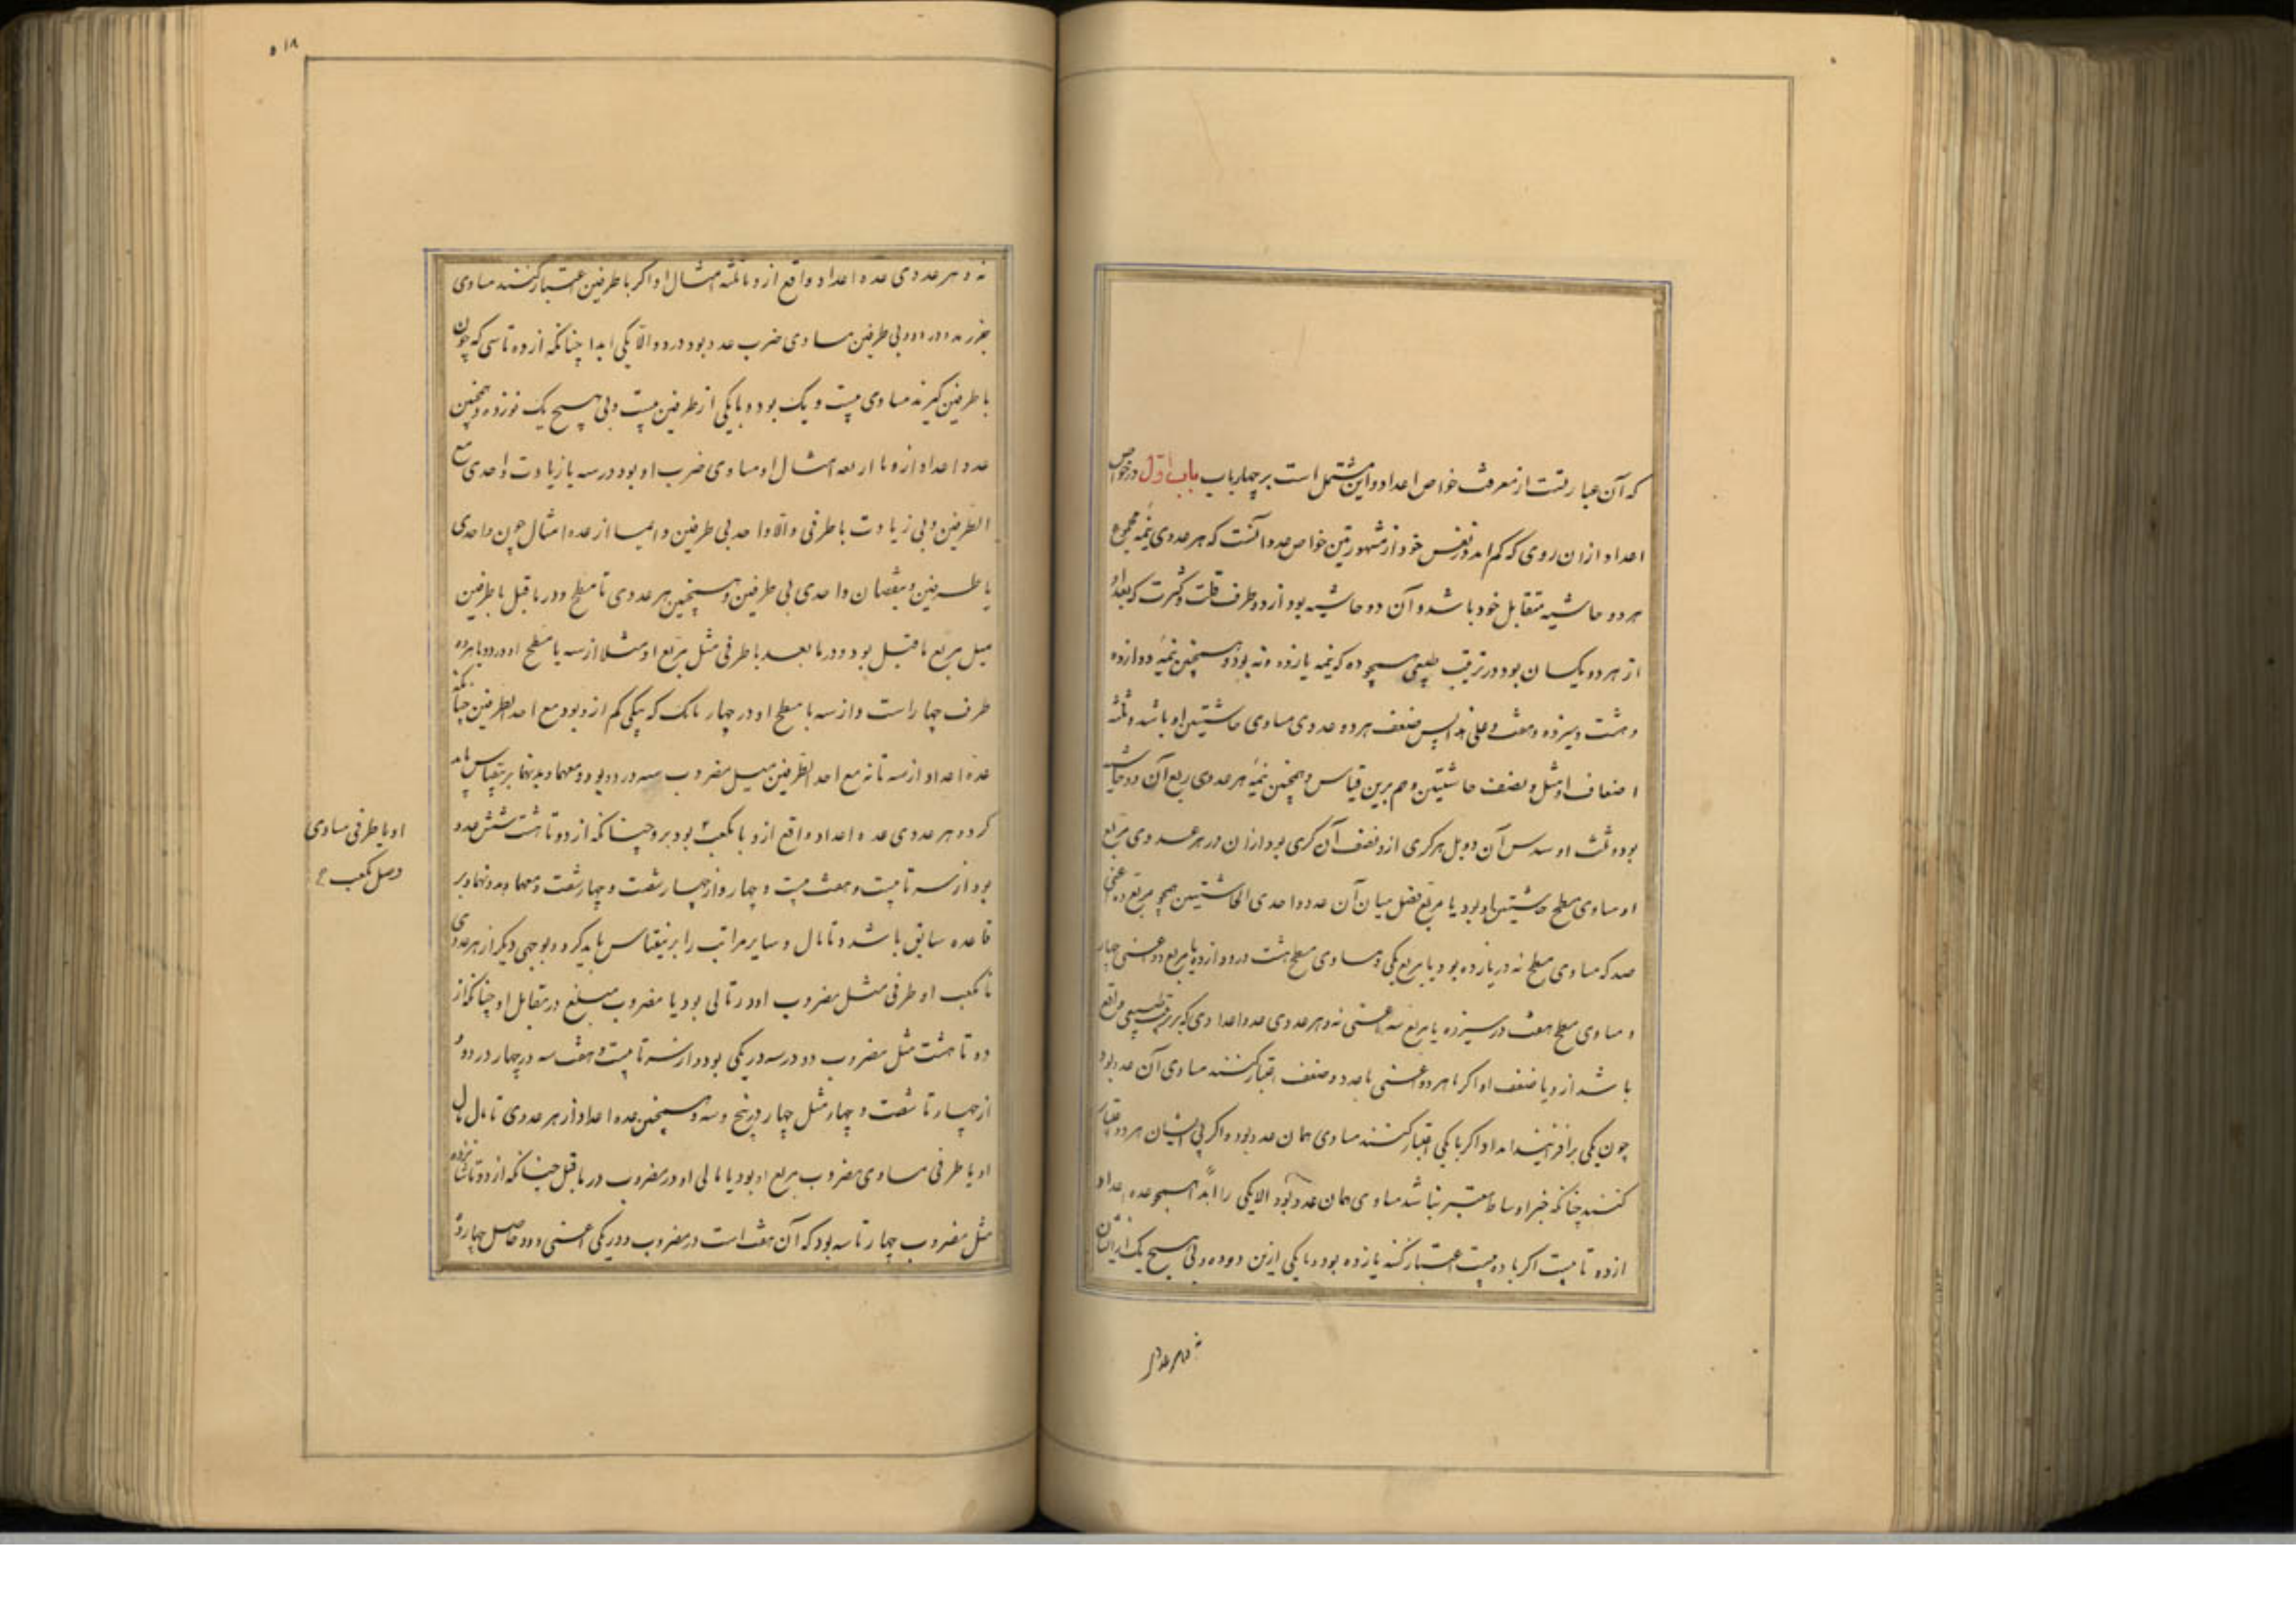 که آن عبارتست از معرفت خواص اعداد و این مشتمل است بر چهار باب باب اول در خواص
اعداد ازان روی که کم اند در نفس خود از مشهورترین خواص عدد آنست که هر عددی نیمه مجموع
هر دو حاشیه متقابل خود باشد و آن دو حاشیه بود از دو طرف قلت و کثرت که بعد او
از هر دو یکسان بود در ترتیب طبیعی همچو ده که نیمه یازده و نه بود و همچنین نیمه دوازده
و هشت و سیزده و هفت و علی هذا پس ضعف هر دو عددی مساوی حاشیتین او باشد و ثلثه
اضعاف او مثل و نصف حاشیتین و هم برین قیاس و همچنین نیمه هر عددی ربع آن دو حاشیه
بود و ثلث او سدس آن و بل هر کری ازو نصف آن کری بود ازان و در هر عددی مربع
او مساوی مسطح حاشیتین او بود با مربع فضل میان آن عدد و احدی الحاشیتین همچو مربع ده اعنی
صد که مساوی مسطح نه در یازده بود با مربع یکی و مساوی مسطح هشت در دوازده با مربع دو اعنی چهار
و مساوی مسطح هفت در سیزده با مربع سه اعنی نه و هر عددی عدد اعدادی که بر ترتیب طبیعی واقع
باشد ازو با ضعف او اگر با هر دو اعنی با عدد و ضعف اعتبار کنند مساوی آن عدد بود
چون یکی بر افزایند اما اگر با یکی اعتبار کنند مساوی همان عدد بود و اگر بی ایشان هر دو اعتبار
کنند چنانکه جز اوساط معتبر نباشد مساوی همان عدد بود الا یکی را ابدا همچو عده اعداد
از ده تا بیست اگر با ده و بیست اعتبار کنند یازده بود و با یکی ازین دو ده و بی هیچ یک از ایشان
نه و هر عددی
نه و هر عددی عده اعداد واقع ازو تا ثلثه امثال او اگر با طرفین اعتبار کنند مساوی
بی طرفین مساوی ضرب عدد بود در دو الا یکی ابدا چنانکه از ده تا سی که چون
با طرفین گیرند مساوی بیست و یک بود و با یکی از طرفین بیست و بی هیچ یک نوزده و همچنین
عدد اعداد ازو تا اربعه امثال او مساوی ضرب او بود در سه با زیادت واحدی مع
الطرفین و بی زیادت با طرفی و الا واحد بی طرفین و ایضا از عده امثال چون واحدی
با طرفین و بنقصان واحدی بی طرفین و همچنین هر عددی تا مسطح او در ماقبل با طرفین
مثل مربع ماقبل بود و در مابعد با طرفی مثل مربع او مثلا از سه تا مسطح او در دو با هر دو
طرف چهار است و از سه تا مسطح او در چهار نه که بیکی کم ازو بود مع احد الطرفین چنانکه
عده اعداد از سه تا نه مع احد الطرفین مثل مضروب سه در دو بود و معهما و بدونهما برینقیاس باید
کرد و هر عددی عده اعداد واقع ازو تا مکعب بود برو چنانکه از دو تا هشت شش عدد
بود از سه تا بیست و هفت بیست و چهار و از چهار تا شصت و چهار شصت و معهما و بدونهما بر
قاعده سابق باشد و تا مال و سایر مراتب را برینقیاس باید کرد و بوجهی دیگر از هر عددی
تا مکعب او با طرفی مثل مضروب او در تالی بود با مضروب مبلغ در مقابل او چنانکه از
دو تا هشت مثل مضروب دو در سه در یکی بود و از سه تا بیست و هفت سه در چهار در دو و
از چهار تا شصت و چهار مثل چهار در پنج و سه و همچنین عده اعداد از هر عددی تا مال مال
او با طرفی مساوی مضروب مربع او بود با تالی او در مضروب در ماقبل چنانکه از دو تا شانزده
مثل مضروب چهار تا سه بود که آن هفت است در مضروب دو در یکی اعنی دو و حاصل چهارده
او با طرفی مساوی